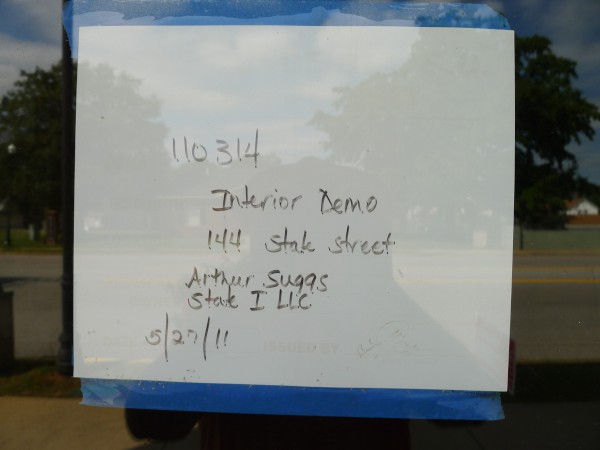 110314
Interior Demo
144 State Street
Arthur Suggs
State I LLC
5/27/11
ISSUED BY